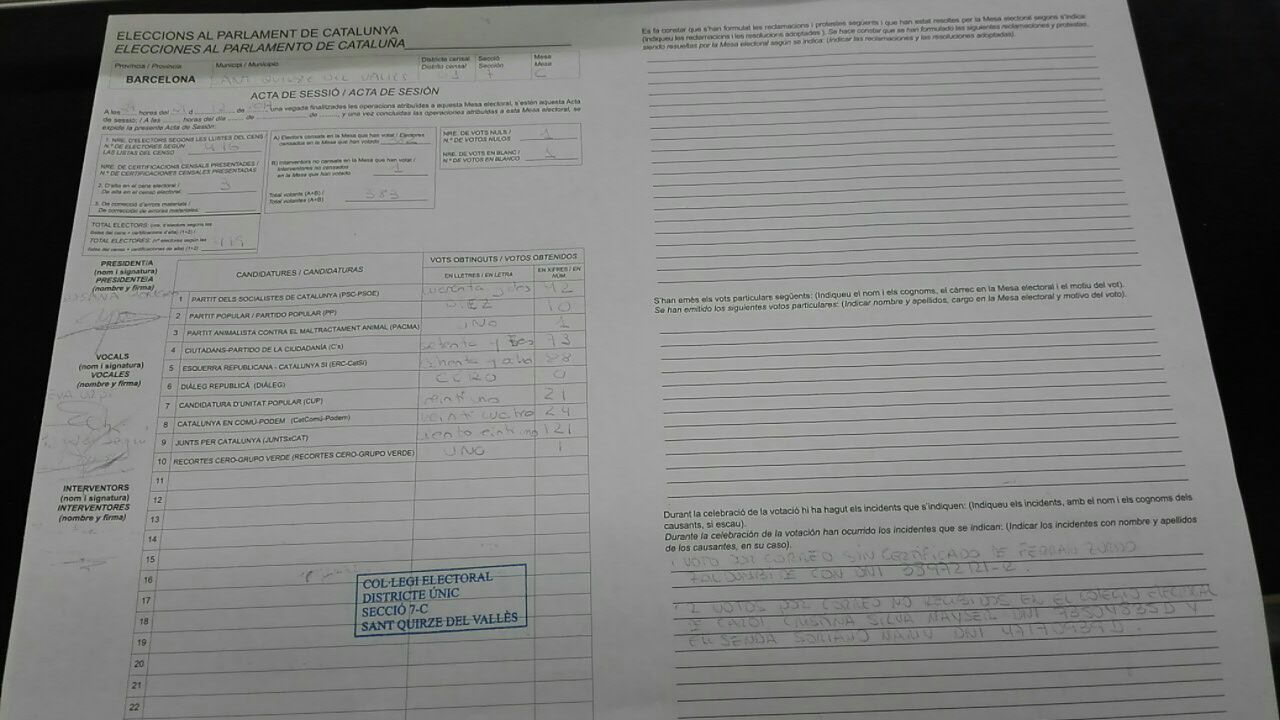 ELECCIONS AL PARLAMENT DE CATALUNYA
ELECCIONES AL PARLAMENTO DE CATALUÑA
Província / Provincia
Municipi / Municipio
Districte censal
Distrito censal
Secció
Sección
Mesa
Mesa
BARCELONA
SANT QUIRZE DEL VALLÈS
01
7
C
ACTA DE SESSIÓ / ACTA DE SESIÓN
A les hores del d de una vegada finalitzades les operacions atribuïdes a aquesta Mesa electoral, s'estén aquesta Acta
de sessió: / A las horas del día de de y una vez concluidas las operaciones atribuidas a esta Mesa electoral, se
expide la presente Acta de Sesión:
1. NRE. D'ELECTORS SEGONS LES LLISTES DEL CENS /
N.º DE ELECTORES SEGÚN
LAS LISTAS DEL CENSO
416
NRE. DE CERTIFICACIONS CENSALS PRESENTADES /
N.º DE CERTIFICACIONES CENSALES PRESENTADAS
2. D'alta en el cens electoral /
De alta en el censo electoral:
3
3. De correcció d'errors materials /
De corrección de errores materiales:
TOTAL ELECTORS: (nre. d'electors segons les
llistes del cens + certificacions d'alta) (1+2) /
TOTAL ELECTORES: (nº electores según las
listas del censo + certificaciones de alta) (1+2)
419
A) Electors censats en la Mesa que han votat / Electores
censados en la Mesa que han votado
382
B) Interventors no censats en la Mesa que han votat /
Interventores no censados
en la Mesa que han votado
1
Total votants (A+B) /
Total votantes (A+B)
383
NRE. DE VOTS NULS /
N.º DE VOTOS NULOS
1
NRE. DE VOTS EN BLANC /
N.º DE VOTOS EN BLANCO
1
PRESIDENT/A
(nom i signatura)
PRESIDENTE/A
(nombre y firma)
SUSANA
VOCALS
(nom i signatura)
VOCALES
(nombre y firma)
EVA
INTERVENTORS
(nom i signatura)
INTERVENTORES
(nombre y firma)
CANDIDATURES / CANDIDATURAS
VOTS OBTINGUTS / VOTOS OBTENIDOS
EN LLETRES / EN LETRA
EN XIFRES / EN NÚM.
1 PARTIT DELS SOCIALISTES DE CATALUNYA (PSC-PSOE) cuarenta y dos 42
2 PARTIT POPULAR / PARTIDO POPULAR (PP) DIEZ 10
3 PARTIT ANIMALISTA CONTRA EL MALTRACTAMENT ANIMAL (PACMA) UNO 1
4 CIUTADANS-PARTIDO DE LA CIUDADANÍA (C's) setenta y tres 73
5 ESQUERRA REPUBLICANA - CATALUNYA SÍ (ERC-CatSí) ochenta y ocho 88
6 DIÀLEG REPUBLICÀ (DIÀLEG) CERO 0
7 CANDIDATURA D'UNITAT POPULAR (CUP) veintiuno 21
8 CATALUNYA EN COMÚ-PODEM (CatComú-Podem) veinticuatro 24
9 JUNTS PER CATALUNYA (JUNTSxCAT) ciento veintiuno 121
10 RECORTES CERO-GRUPO VERDE (RECORTES CERO-GRUPO VERDE) UNO 1
11
12
13
14
15
16
17
18
19
20
21
22
COL·LEGI ELECTORAL
DISTRICTE ÚNIC
SECCIÓ 7-C
SANT QUIRZE DEL VALLÈS
Es fa constar que s'han formulat les reclamacions i protestes següents i que han estat resoltes per la Mesa electoral segons s'indica:
(Indiqueu les reclamacions i les resolucions adoptades). Se hace constar que se han formulado las siguientes reclamaciones y protestas,
siendo resueltas por la Mesa electoral según se indica: (Indicar las reclamaciones y las resoluciones adoptadas).
S'han emès els vots particulars següents: (Indiqueu el nom i els cognoms, el càrrec en la Mesa electoral i el motiu del vot).
Se han emitido los siguientes votos particulares: (Indicar nombre y apellidos, cargo en la Mesa electoral y motivo del voto).
Durant la celebració de la votació hi ha hagut els incidents que s'indiquen: (Indiqueu els incidents, amb el nom i els cognoms dels
causants, si escau).
Durante la celebración de la votación han ocurrido los incidentes que se indican: (Indicar los incidentes con nombre y apellidos
de los causantes, en su caso).
1 VOTO POR CORREO SIN CERTIFICADO DE FERRAN
CON DNI
2 VOTOS POR CORREO NO RECIBIDOS EN EL COLEGIO ELECTORAL
DE SILVA DNI Y
DNI